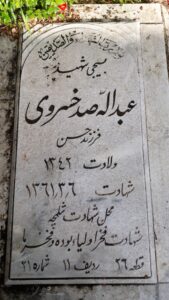 بسیجی شهید
عبداله صدخسروی
فرزند حسن
ولادت ۱۳۴۲
شهادت ۱۳۶۱/۳/۶
محل شهادت شلمچه
شهادت فخر اولیاء بوده و فخر ما
قطعه ۲۶ ردیف ۱۱ شماره ۲۱